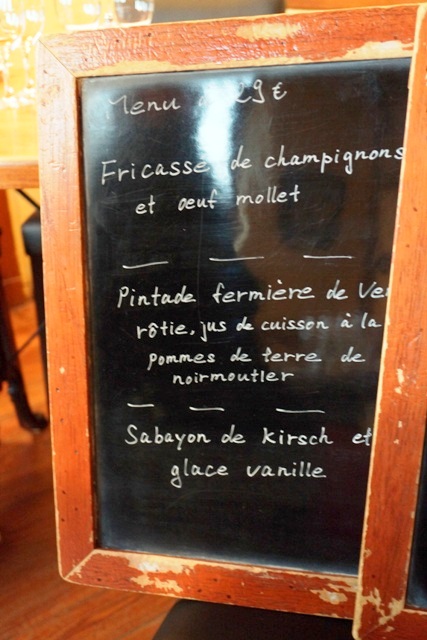 Menu à 29 €
Fricassé de champignons
et œuf mollet
Pintade fermière de Ve
rôtie, jus de cuisson à la
pommes de terre de
noirmoutier
Sabayon de kirsch et
glace vanille